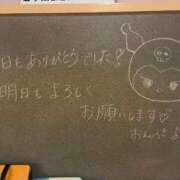 日もありがとうでした!
明日もよろしく
お願いします♡